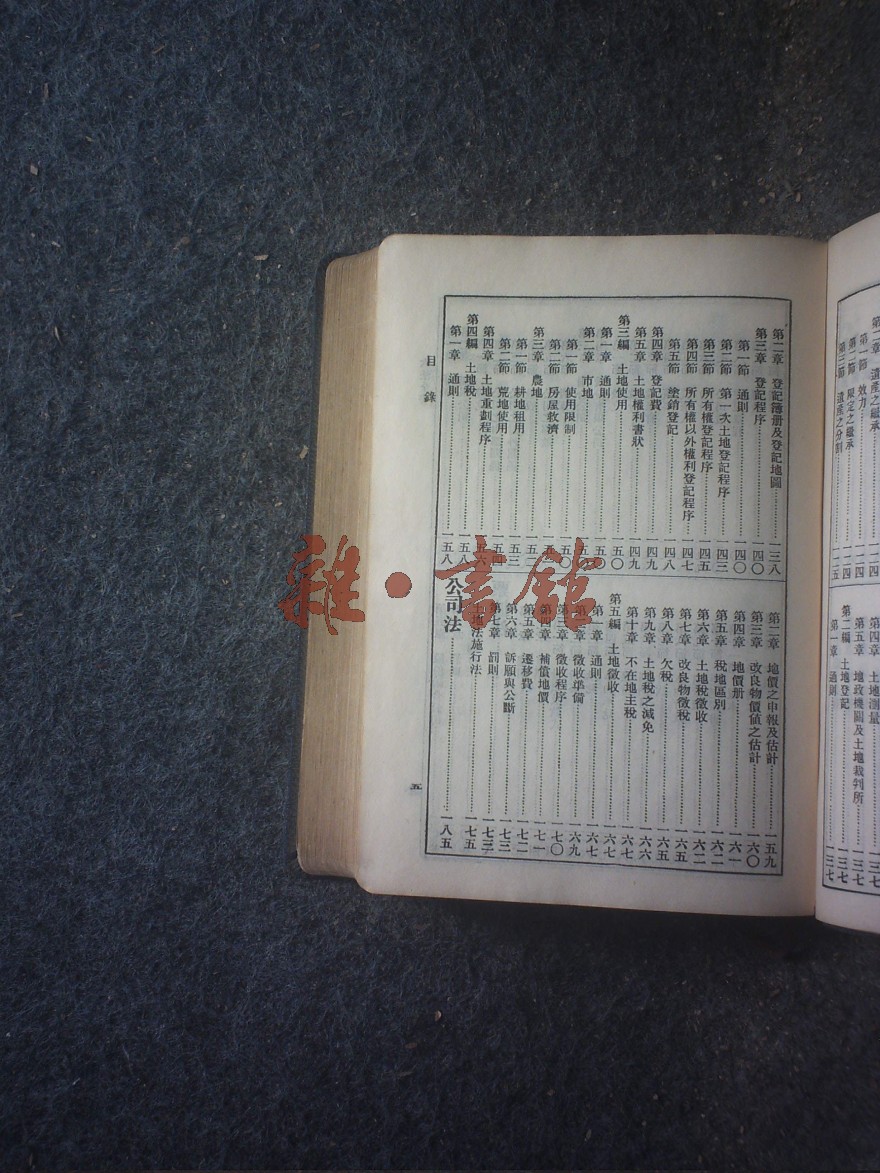 第二章　登記簿册及登記地圖……一三八
第三章　登記程序……一四〇
第一節　通則……一四〇
第二節　第一次土地登記程序……一四三
第三節　所有權登記程序……一四五
第四節　所有權以外權利登記程序……一四七
第五節　塗銷登記……一四八
第四章　登記費……一四九
第五章　土地權利書狀……一四九
第三編　土地使用……一五〇
第一章　通則……一五〇
第二章　市地……一五〇
第一節　使用限制……一五〇
第二節　房屋救濟……一五
第三章　農地……一五二
第一節　耕地租用……一五三
第二節　荒地使用……一五四
第四章　土地重劃程序……一五六
第四編　土地稅……一五八
第一章　通則……一五八
第二章　地價之申報及估計……一五九
第三章　改良物價値之估計……一六〇
第四章　地價册……一六一
第五章　稅地區別……一六二
第六章　土地稅徵收……一六二
第七章　改良物徵稅……一六五
第八章　欠稅……一六五
第九章　土地稅之減免……一六六
第十章　不在地主稅……一六七
第五編　土地徵收……一六七
第一章　通則……一六七
第二章　徵收準備……一六九
第三章　徵收程序……一七〇
第四章　補償地價……一七一
第五章　遷移費……一七二
第六章　訴願與公斷……一七三
第七章　罰則……一七三
土地法施行法……一七五
公司法……一八五
目錄
五
第二章　遺產之繼承
第一節　效力
第二節　限定之繼承
第三節　遺產之分割
第四章　土地測量……一三七
第五章　地政機關及土地裁判所……一三七
第二編　土地登記……一三七
第一章　通則……一三七
雜·書館